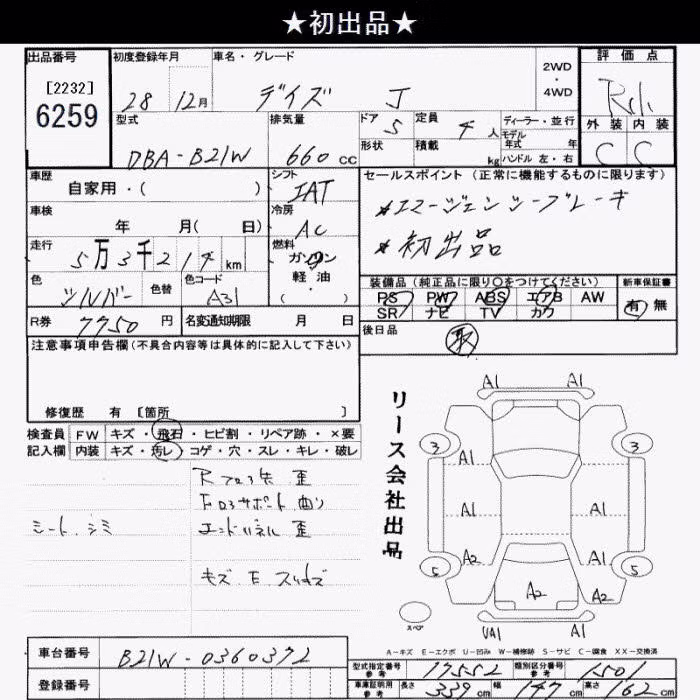 ★初出品★
出品番号
[2232]
6259
初度登録年月
28 12月
車名・グレード
デイズ J
2WD
・
4WD
評価点
外装 内装
C C
型式
DBA-B21W
排気量
660 cc
ドア
5
定員
4 人
形状
積載
kg
ディーラー・並行
モデル
年式 年
ハンドル 左・右
車歴
自家用・( )
シフト
IAT
車検
年 月( 日)
冷房
AC
走行
5万3千214km
燃料
ガソリン
軽油
・
( )
色
シルバー
色替
色コード
A31
R券
7750 円
名変通知期限 月 日
セールスポイント (正常に機能するものに限ります)
*エマージェンシーブレーキ
*初出品
装備品(純正品に限り○をつけてください)
PS PW ABS エアB AW
SR ナビ TV カワ
新車保証書
有・無
後日品
取
注意事項申告欄(不具合内容等は具体的に記入して下さい)
修復歴 有 [箇所 ]
検査員
記入欄
FW キズ・飛石・ヒビ割・リペア跡・×要
内装 キズ・汚レ・コゲ・穴・スレ・キレ・破レ
シート、シミ
Rフロア先 歪
Fロアサポート 曲り
エンドパネル 歪
キズ E スリキズ
リース会社出品
A1 A1
3 3
A1
A1 A1
A2 A1
5 5
A2 A2
スペア
UA1 A1
A-キズ E-エクボ U-凹み W-補修跡 S-サビ C-腐食 XX-交換済
車台番号 B21W-0360372
登録番号
型式指定番号
参考
17552
類別区分番号
参考
1501
車庫証明用
参考
長さ 339 cm 幅 147 cm 高さ 162 cm